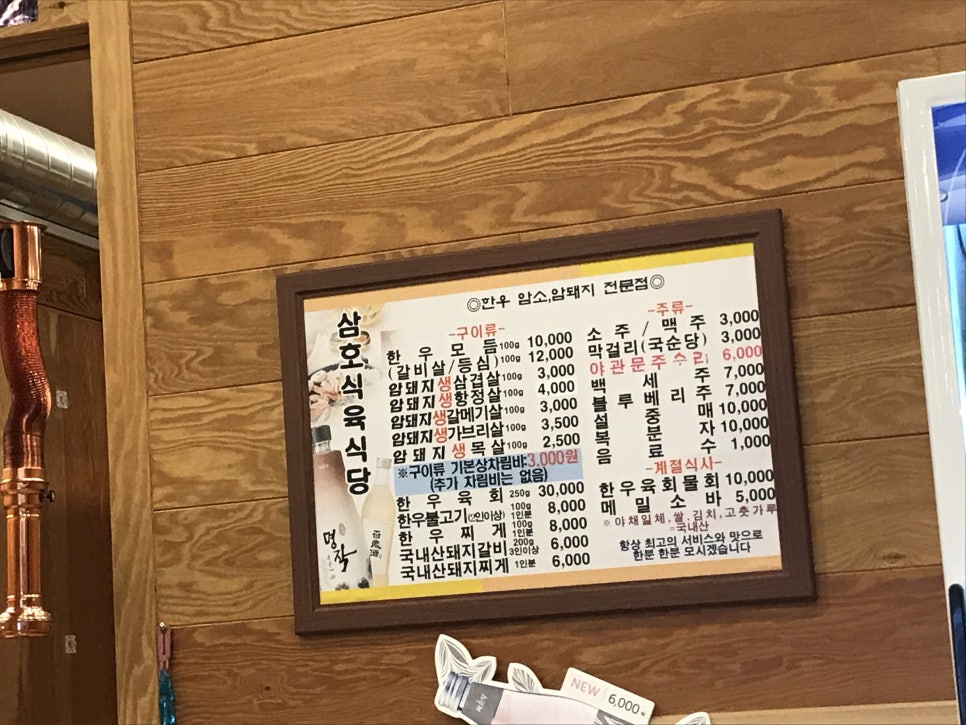 ◎한우 암소,암돼지 전문점◎
삼호식육식당
-구이류-
한우모듬 100g 10,000
(갈비살/등심) 100g 12,000
암돼지생삼겹살 100g 3,000
암돼지생항정살 100g 4,000
암돼지생갈메기살 100g 3,000
암돼지생가브리살 100g 3,500
암돼지생목살 100g 2,500
※구이류 기본상차림비:3,000원
(추가 차림비는 없음)
한우육회 250g 30,000
한우불고기(2인이상) 100g 1인분 8,000
한우찌게 100g 1인분 8,000
국내산돼지갈비 200g 3인이상 6,000
국내산돼지찌게 1인분 6,000
-주류-
소주/맥주 3,000
막걸리(국순당) 3,000
야관문주수리 6,000
백세주 7,000
블루베리주 7,000
설중매 10,000
복분자 10,000
음료수 1,000
-계절식사-
한우육회물회 10,000
메밀소바 5,000
※야채일체,쌀,김치,고춧가루
=국내산
항상 최고의 서비스와 맛으로
한분 한분 모시겠습니다
명작
NEW 6,000